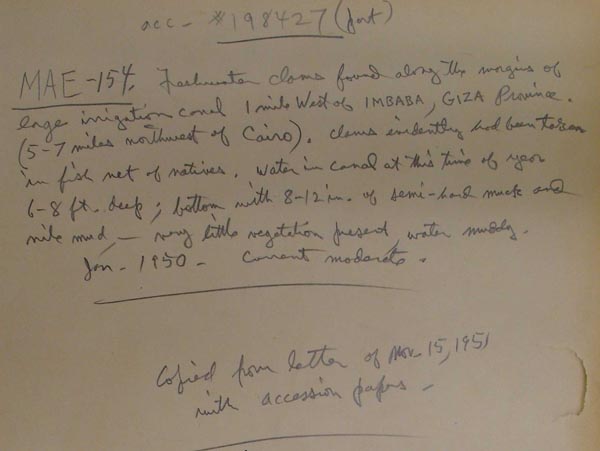 acc - #198427 (part)
MAE-154. Freshwater clams found along the margins of
large irrigation canal 1 mile West of IMBABA, GIZA Province.
(5-7 miles northwest of Cairo). Clams evidently had been taken
in fish net of natives. Water in canal at this time of year
6-8 ft. deep; bottom with 8-12 in. of semi-hard muck and
nile mud, — very little vegetation present, water muddy.
Jan - 1950 - Current moderate.
Copied from letter of Nov. 15, 1951
with accession papers -